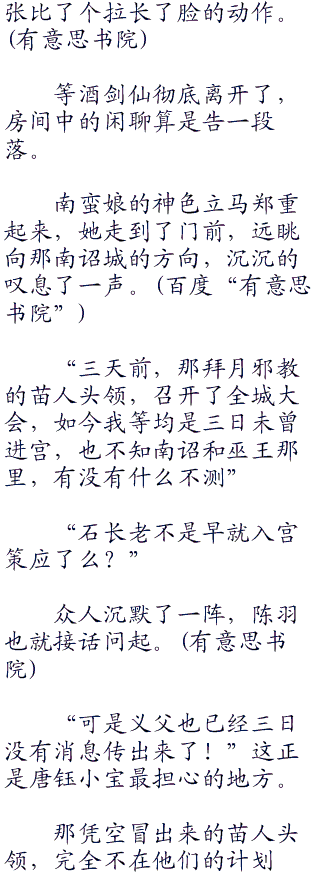 张比了个拉长了脸的动作。
(有意思书院)
等酒剑仙彻底离开了，
房间中的闲聊算是告一段
落。
南蛮娘的神色立马郑重
起来，她走到了门前，远眺
向那南诏城的方向，沉沉的
叹息了一声。(百度“有意思
书院”)
“三天前，那拜月邪教
的苗人头领，召开了全城大
会，如今我等均是三日未曾
进宫，也不知南诏和巫王那
里，有没有什么不测”
“石长老不是早就入宫
策应了么？”
众人沉默了一阵，陈羽
也就接话问起。(有意思书
院)
“可是义父也已经三日
没有消息传出来了！”这正
是唐钰小宝最担心的地方。
那凭空冒出来的苗人头
领，完全不在他们的计划